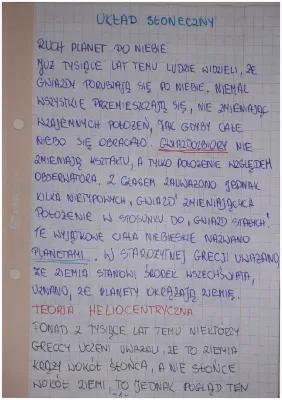 UKŁAD SŁONECZNY
RUCH PLANET PO NIEBIE
JUŻ TYSIĄCE LAT TEMU LUDZIE WIDZIELI, ŻE
GWIAZDY PORUSZAJĄ SIĘ PO NIEBIE. NIEMAL
WSZYSTKIE PRZEMIESZCZAJĄ SIĘ, NIE ZMIENIAJĄC
WZAJEMNYCH POŁOŻEŃ, JAK GDYBY CAŁE
NIEBO SIĘ OBRACAŁO. GWIAZDOZBIORY NIE
ZMIENIAJĄ KSZTAŁTU, A TYLKO POŁOŻENIE WZGLĘDEM
OBSERWATORA. Z CZASEM ZAUWAŻONO JEDNAK
KILKA NIETYPOWYCH „GWIAZD” ZMIENIAJĄCYCH
POŁOŻENIE W STOSUNKU DO „GWIAZD STAŁYCH”.
TE WYJĄTKOWE CIAŁA NIEBIESKIE NAZWANO
PLANETAMI. W STAROŻYTNEJ GRECJI UWAŻANO,
ŻE ZIEMIA STANOWI ŚRODEK WSZECHŚWIATA,
UZNANO, ŻE PLANETY OKRĄŻAJĄ ZIEMIĘ.
TEORIA HELIOCENTRYCZNA
PONAD 2 TYSIĄCE LAT TEMU NIEKTÓRZY
GRECCY UCZENI UWAŻALI, ŻE TO ZIEMIA
KRĄŻY WOKÓŁ SŁOŃCA, A NIE SŁOŃCE
WOKÓŁ ZIEMI, TO JEDNAK POGLĄD TEN
-1-